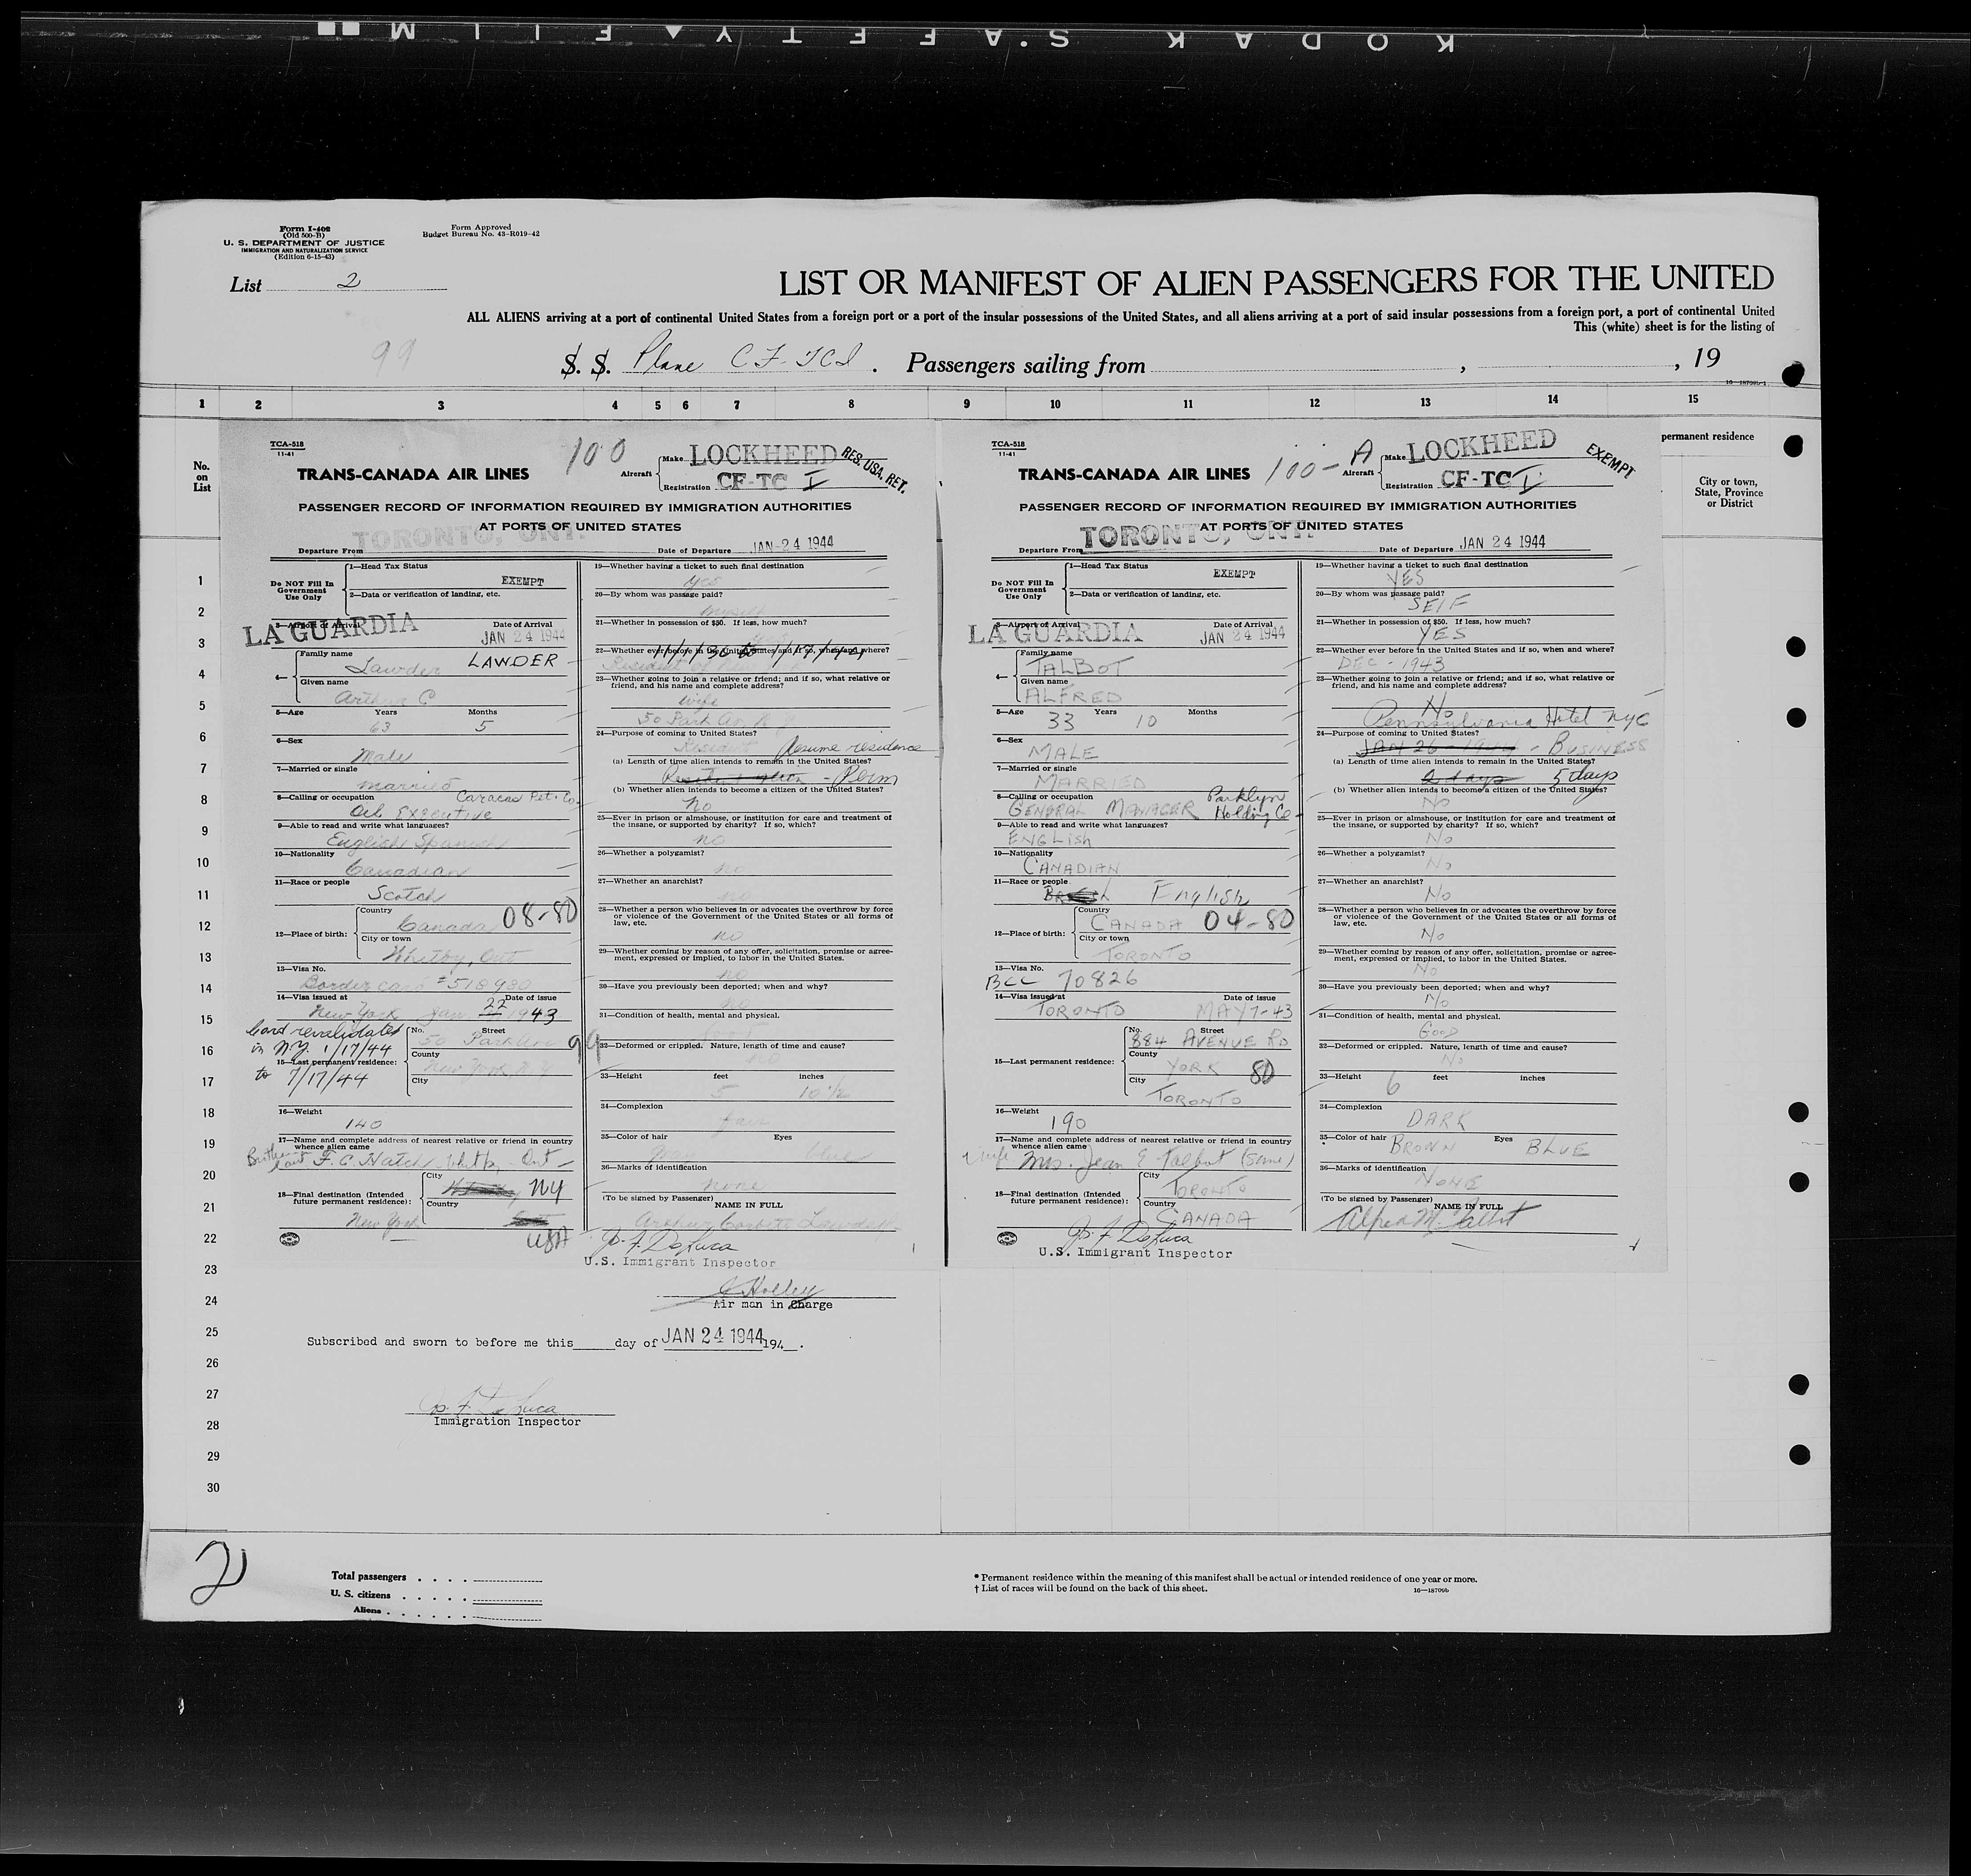 KODAK SAFETY FILM
Form I-402
(Old 500-B)
U. S. DEPARTMENT OF JUSTICE
IMMIGRATION AND NATURALIZATION SERVICE
(Edition 6-15-43)
Form Approved
Budget Bureau No. 43-R019-42
List 2
LIST OR MANIFEST OF ALIEN PASSENGERS FOR THE UNITED
ALL ALIENS arriving at a port of continental United States from a foreign port or a port of the insular possessions of the United States, and all aliens arriving at a port of said insular possessions from a foreign port, a port of continental United
This (white) sheet is for the listing of
99
S. S. Plane CF-TCI. Passengers sailing from , , 19
1 2 3 4 5 6 7 8 9 10 11 12 13 14 15
No. on List
permanent residence
City or town, State, Province or District
TCA-518
11-41
100
TRANS-CANADA AIR LINES
Aircraft
Make LOCKHEED
Registration CF-TC I
RES. USA. RET.
PASSENGER RECORD OF INFORMATION REQUIRED BY IMMIGRATION AUTHORITIES
AT PORTS OF UNITED STATES
Departure From TORONTO, ONT. Date of Departure JAN 24 1944
Do NOT Fill In Government Use Only
1—Head Tax Status
EXEMPT
2—Data or verification of landing, etc.
3—Airport of Arrival Date of Arrival
LA GUARDIA JAN 24 1944
4— Family name
Lawder LAWDER
Given name
Arthur C
5—Age Years Months
63 5
6—Sex
Male
7—Married or single
married
8—Calling or occupation Caracas Pet. Co.
Oil Executive
9—Able to read and write what languages?
English Spanish
10—Nationality
Canadian
11—Race or people
Scotch
12—Place of birth:
Country
Canada 08-80
City or town
Whitby, Ont
13—Visa No.
Border card #518980
14—Visa issued at Date of issue
New York Jan. 22 1943
Card revalidated
in N.Y. 1/17/44
to 7/17/44
15—Last permanent residence:
No. Street
50 Park Ave 99
County
New York N Y
City
16—Weight
140
17—Name and complete address of nearest relative or friend in country whence alien came
F. C. Hatch Ont
18—Final destination (Intended future permanent residence):
City
NY
Country
New York
USA
19—Whether having a ticket to such final destination
yes
20—By whom was passage paid?
myself
21—Whether in possession of $50. If less, how much?
yes
22—Whether ever before in the United States and if so, when and where?
Resident of
23—Whether going to join a relative or friend; and if so, what relative or friend, and his name and complete address?
wife
50 Park Av. N Y
24—Purpose of coming to United States?
Resident Resume residence
(a) Length of time alien intends to remain in the United States?
- Perm
(b) Whether alien intends to become a citizen of the United States?
No
25—Ever in prison or almshouse, or institution for care and treatment of the insane, or supported by charity? If so, which?
no
26—Whether a polygamist?
no
27—Whether an anarchist?
no
28—Whether a person who believes in or advocates the overthrow by force or violence of the Government of the United States or all forms of law, etc.
no
29—Whether coming by reason of any offer, solicitation, promise or agreement, expressed or implied, to labor in the United States.
no
30—Have you previously been deported; when and why?
no
31—Condition of health, mental and physical.
32—Deformed or crippled. Nature, length of time and cause?
no
33—Height feet inches
5 10 1/2
34—Complexion
fair
35—Color of hair Eyes
gray blue
36—Marks of identification
none
(To be signed by Passenger) NAME IN FULL
Arthur Corbett Lawder
U.S. Immigrant Inspector
Air man in Charge
Subscribed and sworn to before me this day of JAN 24 1944 194 .
Immigration Inspector
TCA-518
11-41
100-A
TRANS-CANADA AIR LINES
Aircraft
Make LOCKHEED
Registration CF-TC I
EXEMPT
PASSENGER RECORD OF INFORMATION REQUIRED BY IMMIGRATION AUTHORITIES
AT PORTS OF UNITED STATES
Departure From TORONTO, ONT. Date of Departure JAN 24 1944
Do NOT Fill In Government Use Only
1—Head Tax Status
EXEMPT
2—Data or verification of landing, etc.
3—Airport of Arrival Date of Arrival
LA GUARDIA JAN 24 1944
4— Family name
TALBOT
Given name
ALFRED
5—Age Years Months
33 10
6—Sex
MALE
7—Married or single
MARRIED
8—Calling or occupation Parklyn
GENERAL MANAGER Holding Co
9—Able to read and write what languages?
ENGLISH
10—Nationality
CANADIAN
11—Race or people
English
12—Place of birth:
Country
CANADA 04-80
City or town
TORONTO
13—Visa No.
BCC 70826
14—Visa issued at Date of issue
TORONTO MAY 7-43
15—Last permanent residence:
No. Street
884 AVENUE RD
County
YORK 80
City
TORONTO
16—Weight
190
17—Name and complete address of nearest relative or friend in country whence alien came
wife Mrs. Jean E Talbot (same)
18—Final destination (Intended future permanent residence):
City
TORONTO
Country
CANADA
U.S. Immigrant Inspector
19—Whether having a ticket to such final destination
YES
20—By whom was passage paid?
SELF
21—Whether in possession of $50. If less, how much?
YES
22—Whether ever before in the United States and if so, when and where?
DEC - 1943
23—Whether going to join a relative or friend; and if so, what relative or friend, and his name and complete address?
No
Pennsylvania Hotel NYC
24—Purpose of coming to United States?
JAN 26 - 1944 - BUSINESS
(a) Length of time alien intends to remain in the United States?
2 days 5 days
(b) Whether alien intends to become a citizen of the United States?
No
25—Ever in prison or almshouse, or institution for care and treatment of the insane, or supported by charity? If so, which?
No
26—Whether a polygamist?
No
27—Whether an anarchist?
No
28—Whether a person who believes in or advocates the overthrow by force or violence of the Government of the United States or all forms of law, etc.
No
29—Whether coming by reason of any offer, solicitation, promise or agreement, expressed or implied, to labor in the United States.
No
30—Have you previously been deported; when and why?
No
31—Condition of health, mental and physical.
GOOD
32—Deformed or crippled. Nature, length of time and cause?
No
33—Height feet inches
6
34—Complexion
DARK
35—Color of hair Eyes
BROWN BLUE
36—Marks of identification
NONE
(To be signed by Passenger) NAME IN FULL
Alfred M. Talbot
1
2
3
4
5
6
7
8
9
10
11
12
13
14
15
16
17
18
19
20
21
22
23
24
25
26
27
28
29
30
2
Total passengers . . . .
U. S. citizens . . . . .
Aliens . . . . . .
* Permanent residence within the meaning of this manifest shall be actual or intended residence of one year or more.
† List of races will be found on the back of this sheet.
16—18709b